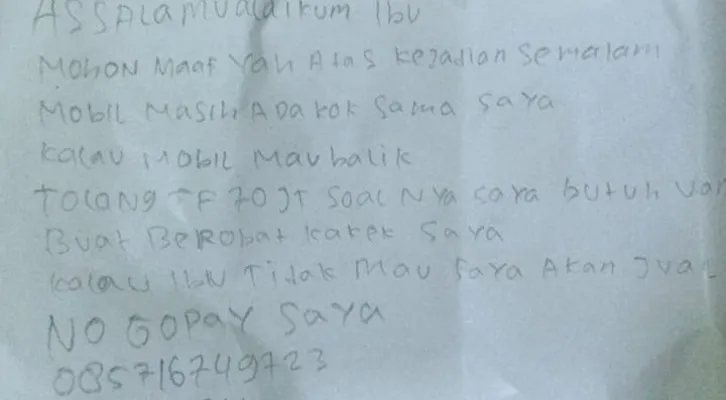 ASSALAMUALAIKUM IBU
MOHON MAAF YAH ATAS KEJADIAN SEMALAM
MOBIL MASIH ADA KOK SAMA SAYA
KALAU MOBIL MAU BALIK
TOLONG TF 70 JT SOALNYA SAYA BUTUH
BUAT BEROBAT KAKEK SAYA
KALAU IBU TIDAK MAU SAYA AKAN JUAL
NO GOPAY SAYA
085716749723